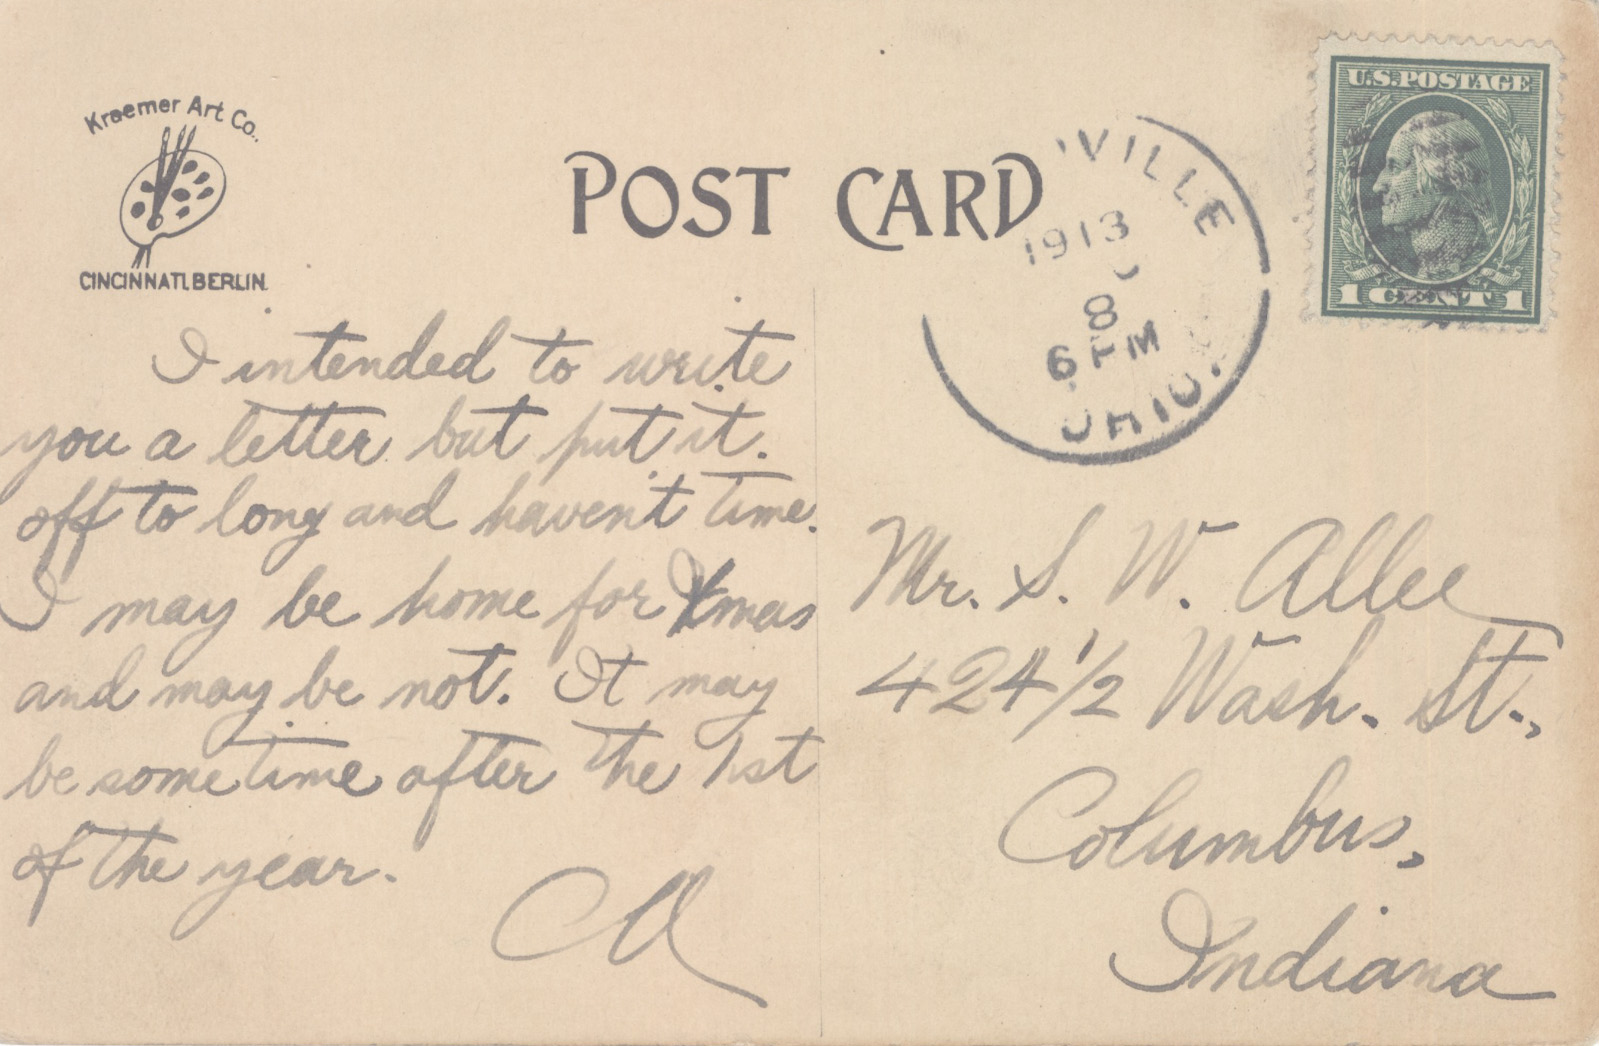 Kraemer Art Co.
CINCINNATI. BERLIN.
POST CARD
VILLE
1913
8
6 PM
OHIO.
U.S. POSTAGE
1 CENT 1
I intended to write
you a letter but put it.
off to long and haven't time.
I may be home for Xmas
and may be not. It may
be sometime after the 1st
of the year.
CA
Mr. S. W. Allee
424 1/2 Wash. St.,
Columbus,
Indiana